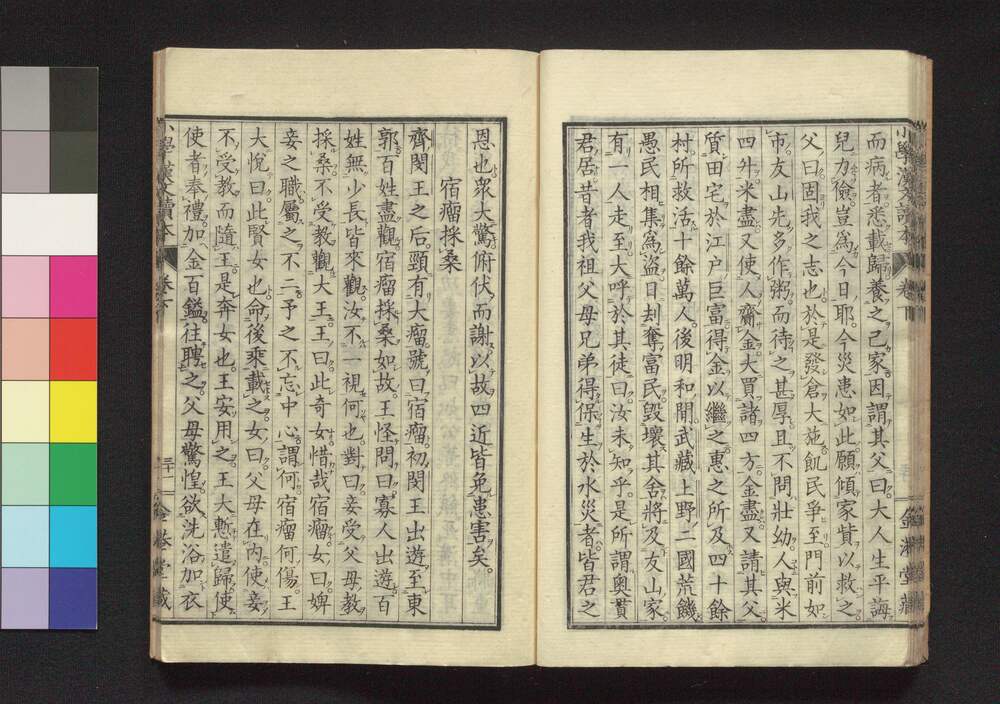 而病者悉載歸養之己家因謂其父曰大人生平誨
兒力儉豈爲今日耶今災患如此願傾家貲以救之
父曰固我之志也於是發倉大施飢民爭至門前如
市友山先多作粥而待之甚厚且不問壯幼人與米
四升米盡又使人齎金大買諸四方金盡又請其父
質田宅於江戸巨富得金以繼之惠之所及四十餘
村所救活十餘萬人後明和間武藏上野二國荒饑
愚民相集爲盜日刦奪富民毀壞其舍將及友山家
有一人走至大呼於其徒曰汝未知乎是所謂奧貫
君居昔者我祖父母兄弟得保生於水災者皆君之
恩也衆大驚俯伏而謝以故四近皆免患害矣
宿瘤採桑
齊閔王之后頸有大瘤號曰宿瘤初閔王出遊至東
郭百姓盡觀宿瘤採桑如故王怪問曰寡人出遊百
姓無少長皆來觀汝不一視何也對曰妾受父母教
採桑不受教觀大王王曰此奇女惜哉宿瘤女曰婢
妾之職屬之不二予之不忘中心謂何宿瘤何傷王
大悅曰此賢女也命後乘載之女曰父母在內使妾
不受教而隨王是奔女也王安用之王大慙遣歸使
使者奉禮加金百鎰往聘之父母驚惶欲洗浴加衣
小學漢文讀本